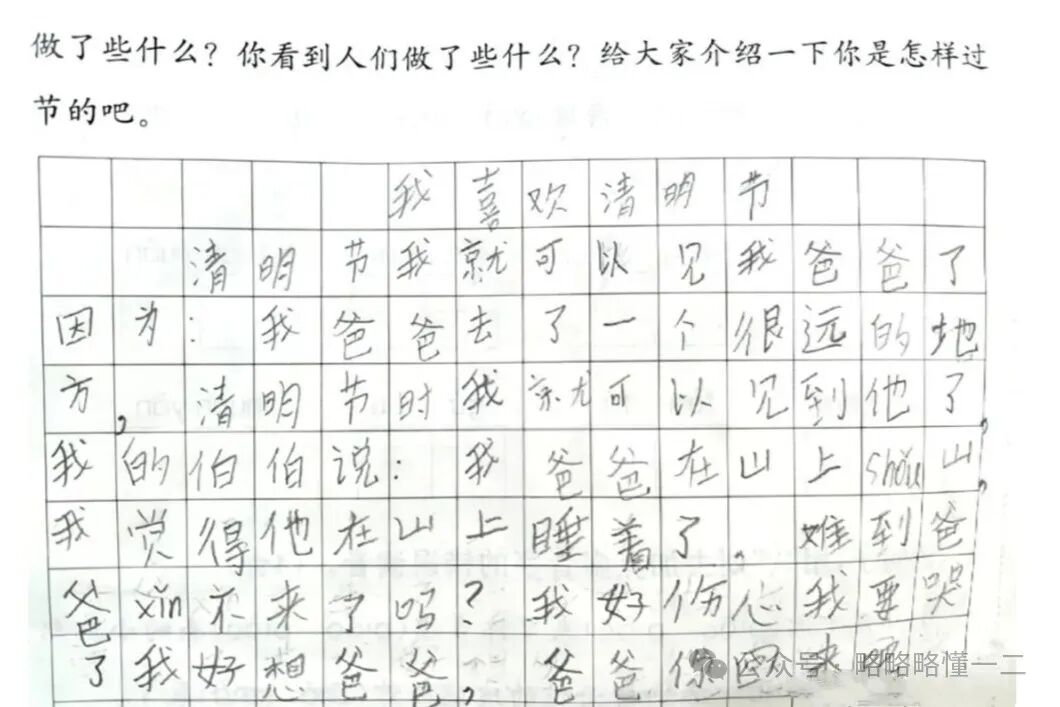 做了些什么？你看到人们做了些什么？给大家介绍一下你是怎样过
节的吧。
我喜欢清明节
清明节我就可以见我爸爸了
因为：我爸爸去了一个很远的地
方，清明节时我就可以见到他了，
我的伯伯说：我爸爸在山上shǒu山，
我觉得他在山上睡着了。难到爸
爸xǐn不来了吗？我好伤心我要哭
了我好想爸爸，爸爸你回来
公众号·略略略懂一二